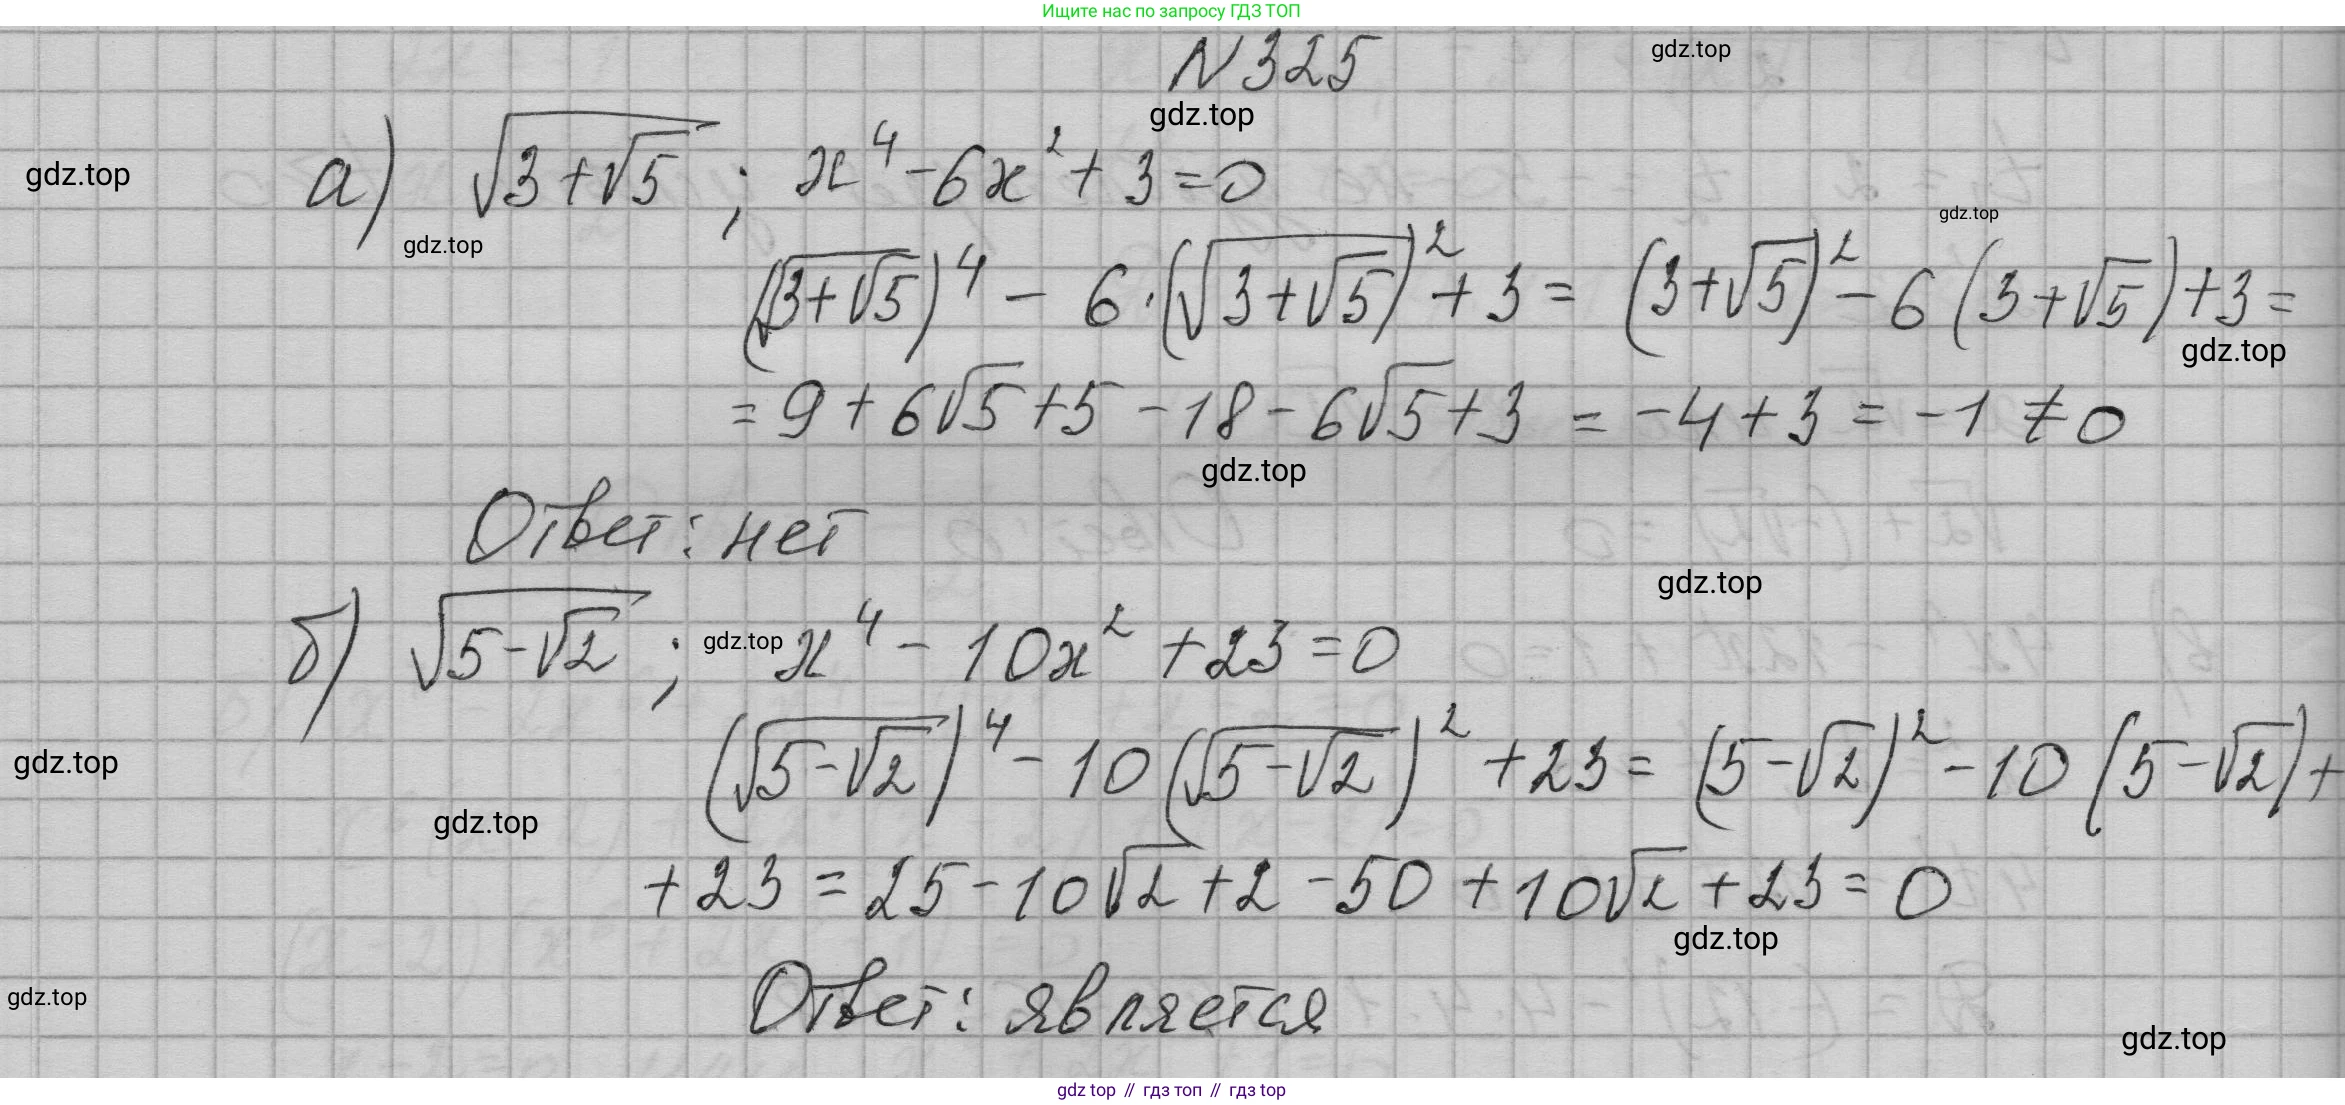 Ищите нас по запросу ГДЗ ТОП
N 325
gdz.top
gdz.top
а) √(3+√5) ; x⁴ - 6x² + 3 = 0
gdz.top
gdz.top
gdz.top
(√(3+√5))⁴ - 6·(√(3+√5))² + 3 = (3+√5)² - 6(3+√5) + 3 =
gdz.top
= 9 + 6√5 + 5 - 18 - 6√5 + 3 = -4 + 3 = -1 ≠ 0
gdz.top
Ответ: нет
gdz.top
б) √(5-√2) ; x⁴ - 10x² + 23 = 0
gdz.top
(√(5-√2))⁴ - 10(√(5-√2))² + 23 = (5-√2)² - 10(5-√2) +
gdz.top
gdz.top
+ 23 = 25 - 10√2 + 2 - 50 + 10√2 + 23 = 0
gdz.top
Ответ: является
gdz.top
gdz.top
gdz top // гдз топ // гдз top